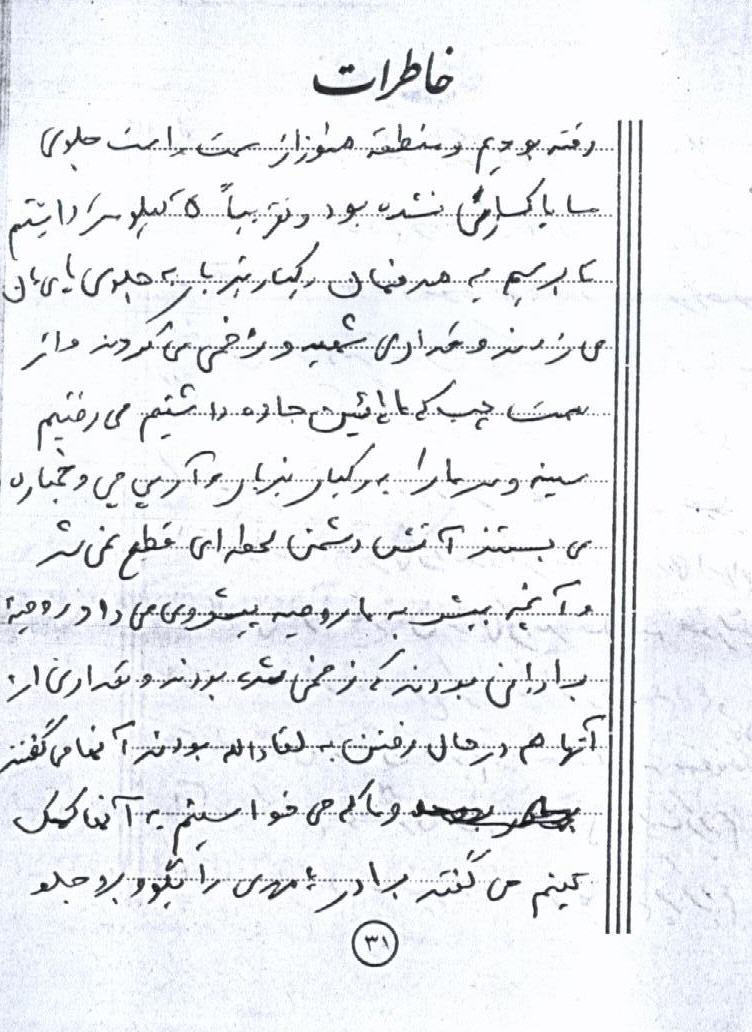 خاطرات
رفته بودیم و منطقه هنوز از سمت راست جلوی
ما پاکسازی نشده بود و تقریباً ۵ کیلومتر داشتیم
تا برسیم به هدفمان رگبار تیربار به جلوی پایمان
می زدند و مقداری شهید و زخمی می کردند و از
سمت چپ که ما پائین جاده داشتیم می رفتیم
سینه و سر ما را به رگبار تیربار و آرپی جی و خمپاره
می بستند آتش دشمن لحظه ای قطع نمی شد
و آنچه بیشتر به ما روحیه پیشروی می داد روحیه
برادرانی بودند که زخمی شده بودند و مقداری از
آنها هم در حال رفتن به لقاءالله بودند آنها می گفتند
و ما که می خواستیم به آنها کمک
کنیم می گفتند برادر مهدی را بگو و برو جلو
۳۱